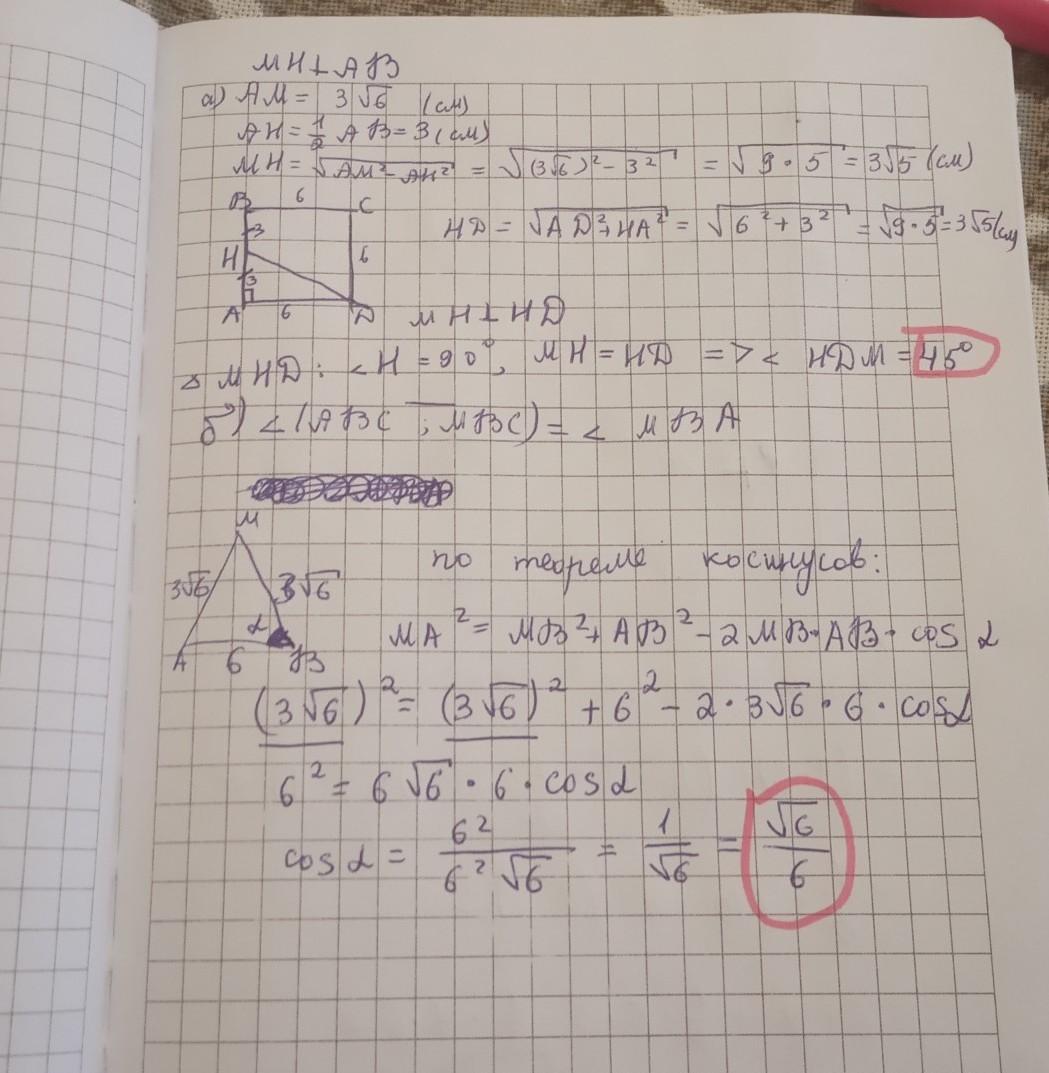 MH⊥AB
а) AM = 3√6 (см)
AH = 1/2 AB = 3 (см)
MH = √(AM² - AH²) = √((3√6)² - 3²) = √(9·5) = 3√5 (см)
B 6 C
3
H 6
3
A 6 D
HD = √(AD² + HA²) = √(6² + 3²) = √(9·5) = 3√5 (см)
MH⊥HD
△ MHD: <H = 90°, MH = HD => < HDM = 45°
б) < (ABC ; MBC) = < MBA
M
3√6 3√6
α
A 6 B
по теореме косинусов:
MA² = MB² + AB² - 2MB·AB·cos α
(3√6)² = (3√6)² + 6² - 2·3√6·6·cosα
6² = 6√6·6·cosα
cosα = 6²/(6²√6) = 1/√6 = √6/6